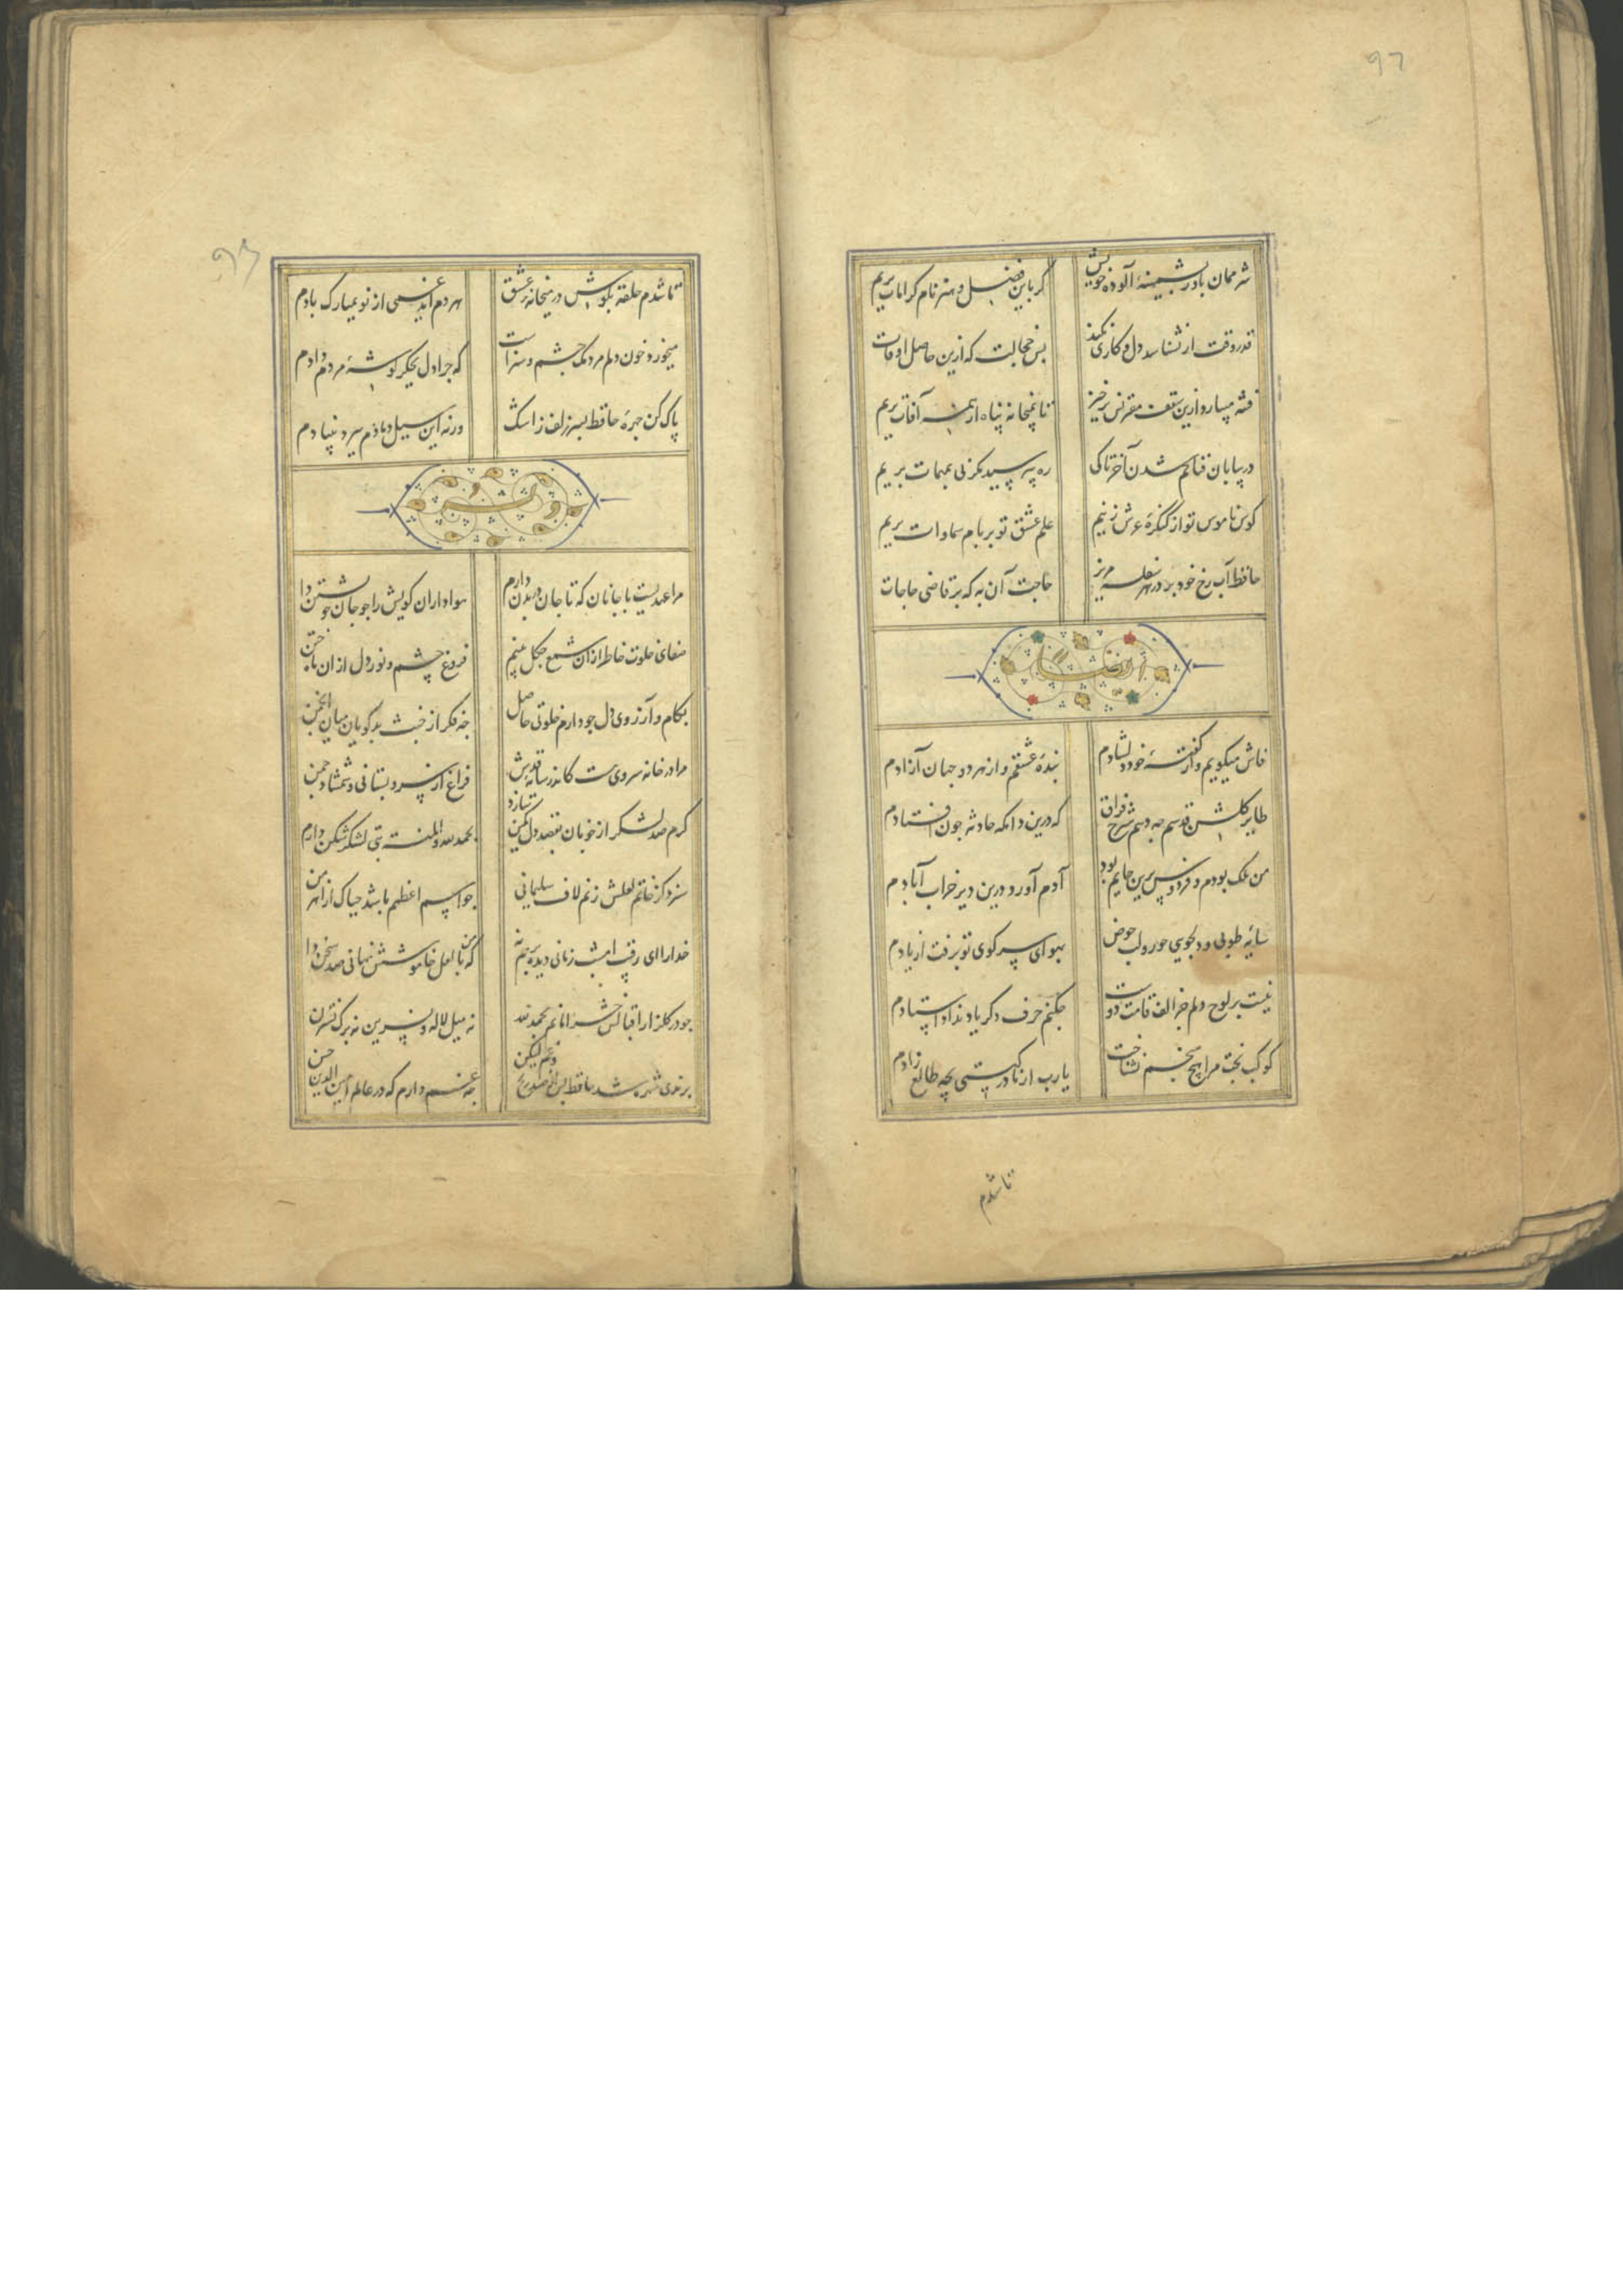 97
شرممان باد ز پشمینهٔ آلودهٔ خویش
گر باین فضل و هنر نام کرامات بریم
قدر وقت ار نشناسد دل و کاری نکند
بس خجالت که ازین حاصل اوقات بریم
فتنه میبارد ازین سقف مقرنس برخیز
تا بمیخانه پناه از همه آفات بریم
در بیابان فنا کم شدن آخر تا کی
ره بپرسیم مکر پی بمهمات بریم
کوس ناموس تو از کنکرهٔ عرش زنیم
علم عشق تو بر بام سماوات بریم
حافظ آب رخ خود بر در هر سفله مریز
حاجت آن به که بر قاضی حاجات بریم
ایضا
فاش میکویم و از کفتهٔ خود دلشادم
بندهٔ عشقم و از هر دو جهان آزادم
طایر کلشن قدسم چه دهم شرح فراق
که درین دامکه حادثه چون افتادم
من ملک بودم و فردوس برین جایم بود
آدم آورد درین دیر خراب آبادم
سایهٔ طوبی و دلجویی حور و لب حوض
بهوای سر کوی تو برفت از یادم
نیست بر لوح دلم جز الف قامت دوست
چکنم حرف دکر یاد نداد استادم
کوکب بخت مرا هیچ منجم نشناخت
یا رب از مادر کیتی بچه طالع زادم
تا شدم
تا شدم حلقه بکوش در میخانهٔ عشق
هر دم آید غمی از نو بمبارک بادم
میخورد خون دلم مردمک چشم و سزاست
که چرا دل بجکر کوشهٔ مردم دادم
پاک کن چهرهٔ حافظ بسر زلف ز اشک
ورنه این سیل دمادم ببرد بنیادم
وله
مرا عهدیست با جانان که تا جان در بدن دارم
هواداران کویش را چو جان خویشتن دارم
صفای خلوت خاطر از آن شمع چکل بینم
فروغ چشم و نور دل از آن ماه ختن
بکام و آرزوی دل چو دارم خلوتی حاصل
چه فکر از خبث بدکویان میان انجمن
مرا در خانه سروی هست کاندر سایهٔ قدش
فراغ از سرو بستانی و شمشاد چمن
کرم صد لشکر از خوبان بقصد دل کمین سازد
بحمد الله و المنه بتی لشکر شکن دارم
سزد کز خاتم لعلش زنم لاف سلیمانی
چو اسم اعظم باشد چه باک از اهرمن
خدا را ای رقیب امشب زمانی دیده بر هم نه
که من با لعل خاموشش نهانی صد سخن دارم
چو در کلزار اقبالش خرامانم بحمد الله
نه میل لاله و نسرین نه برک نسترن
برندی شهره شد حافظ پس از چندین ورع لیکن
چه غم دارم که در عالم امین الدین حسن